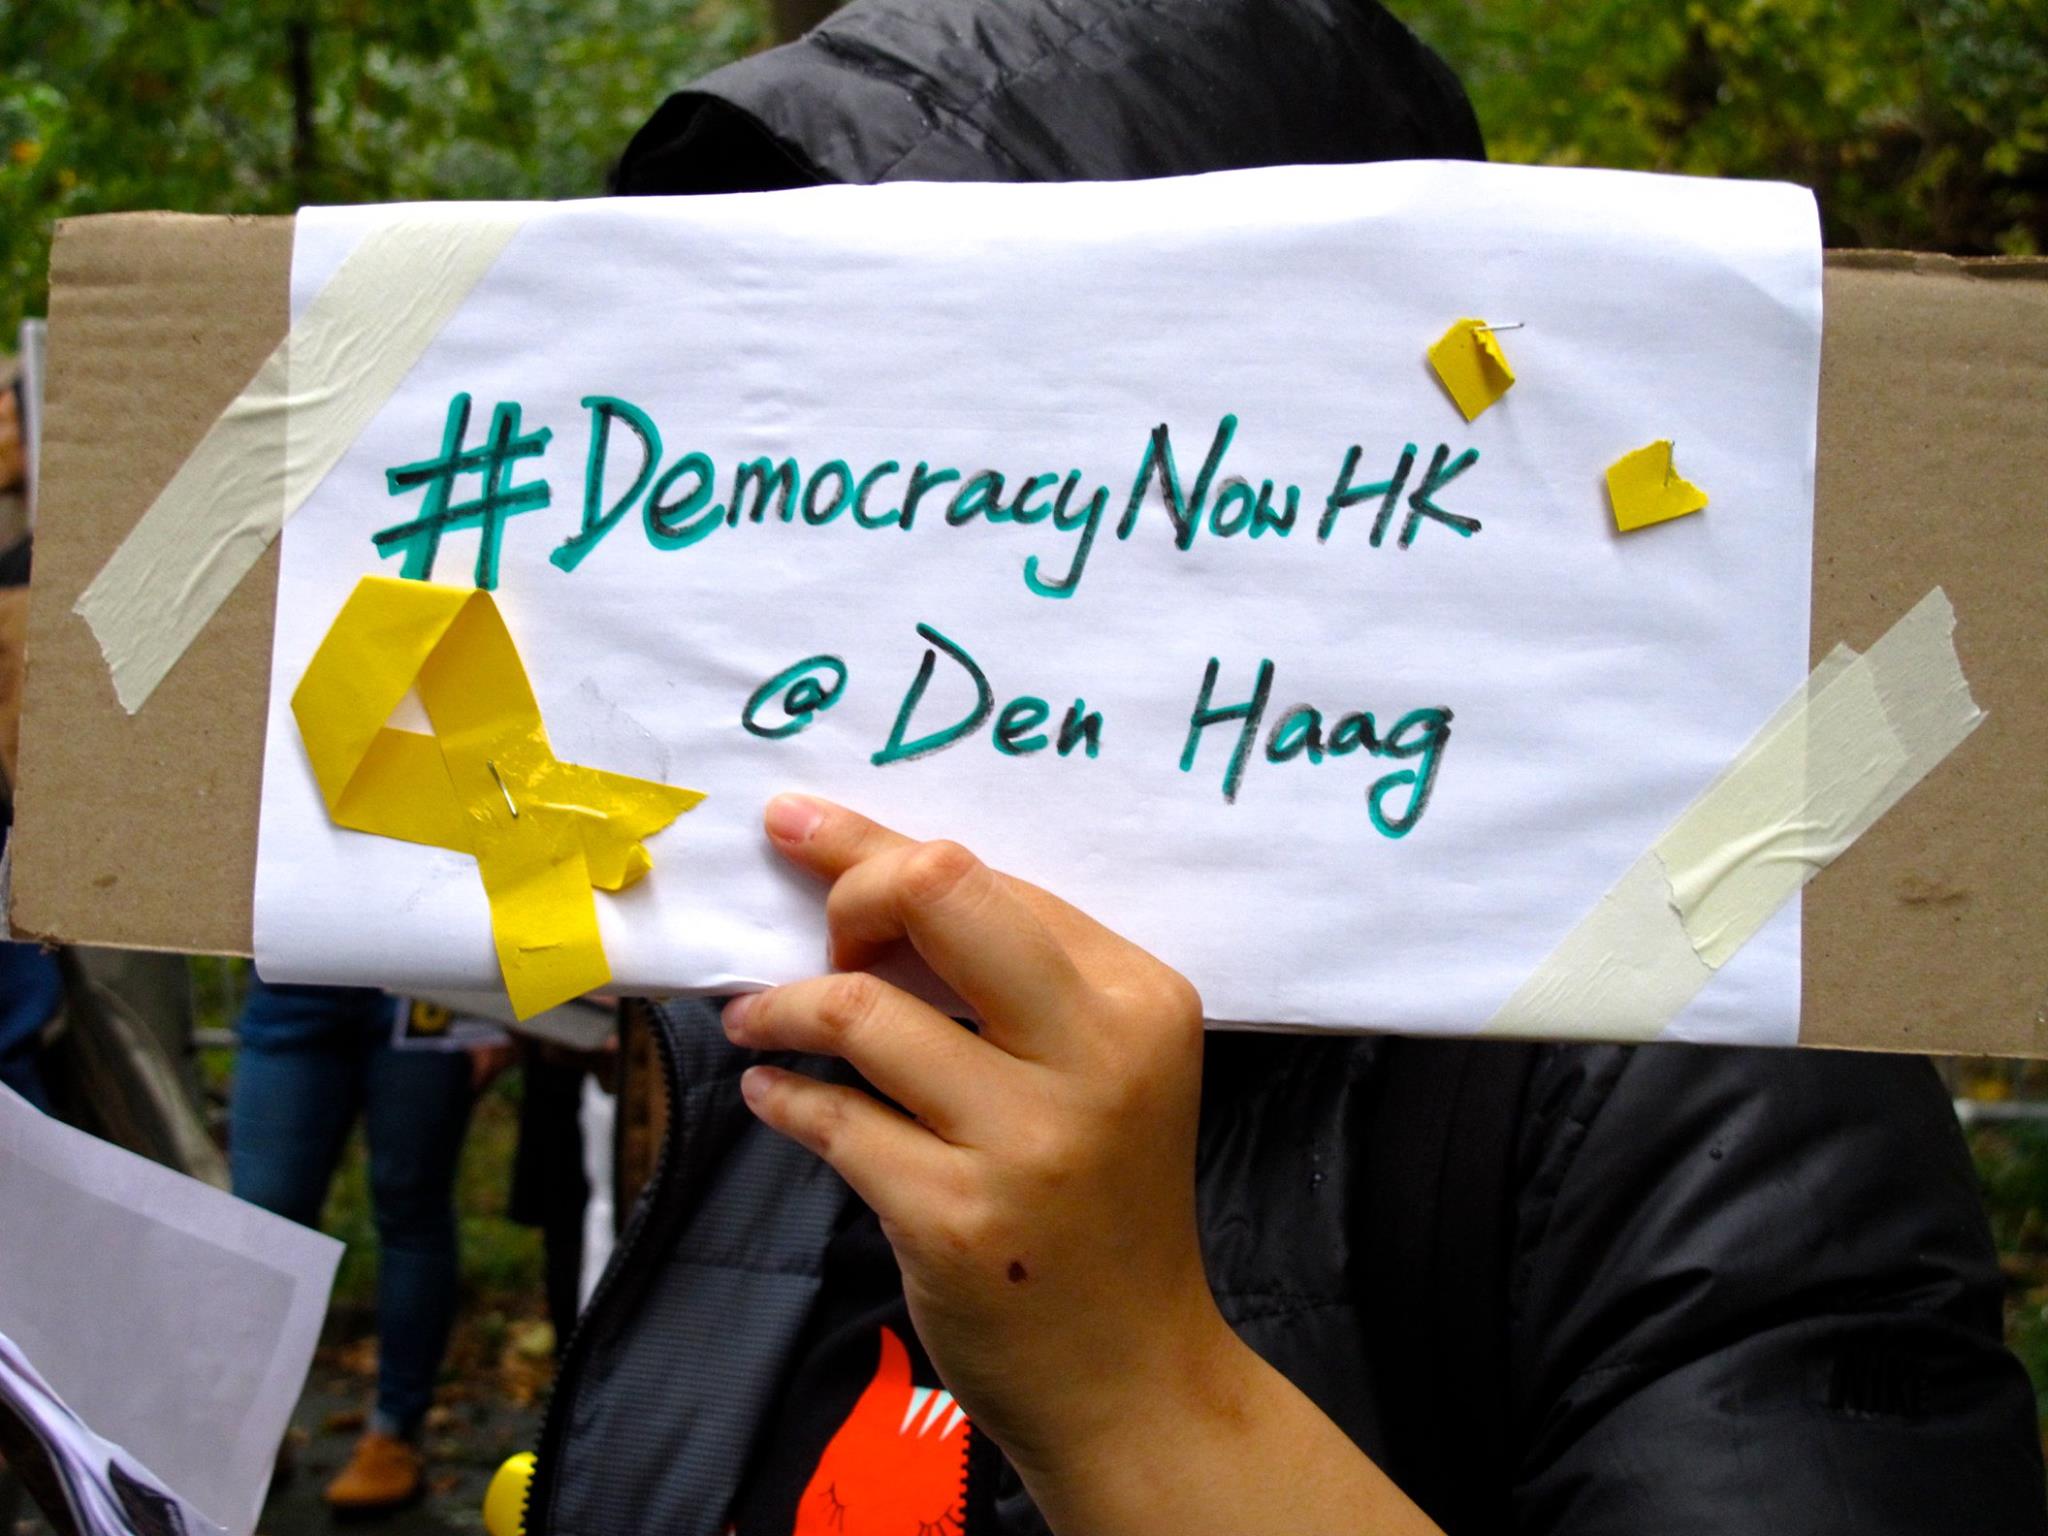 #DemocracyNowHK
@ Den Haag
NIKE